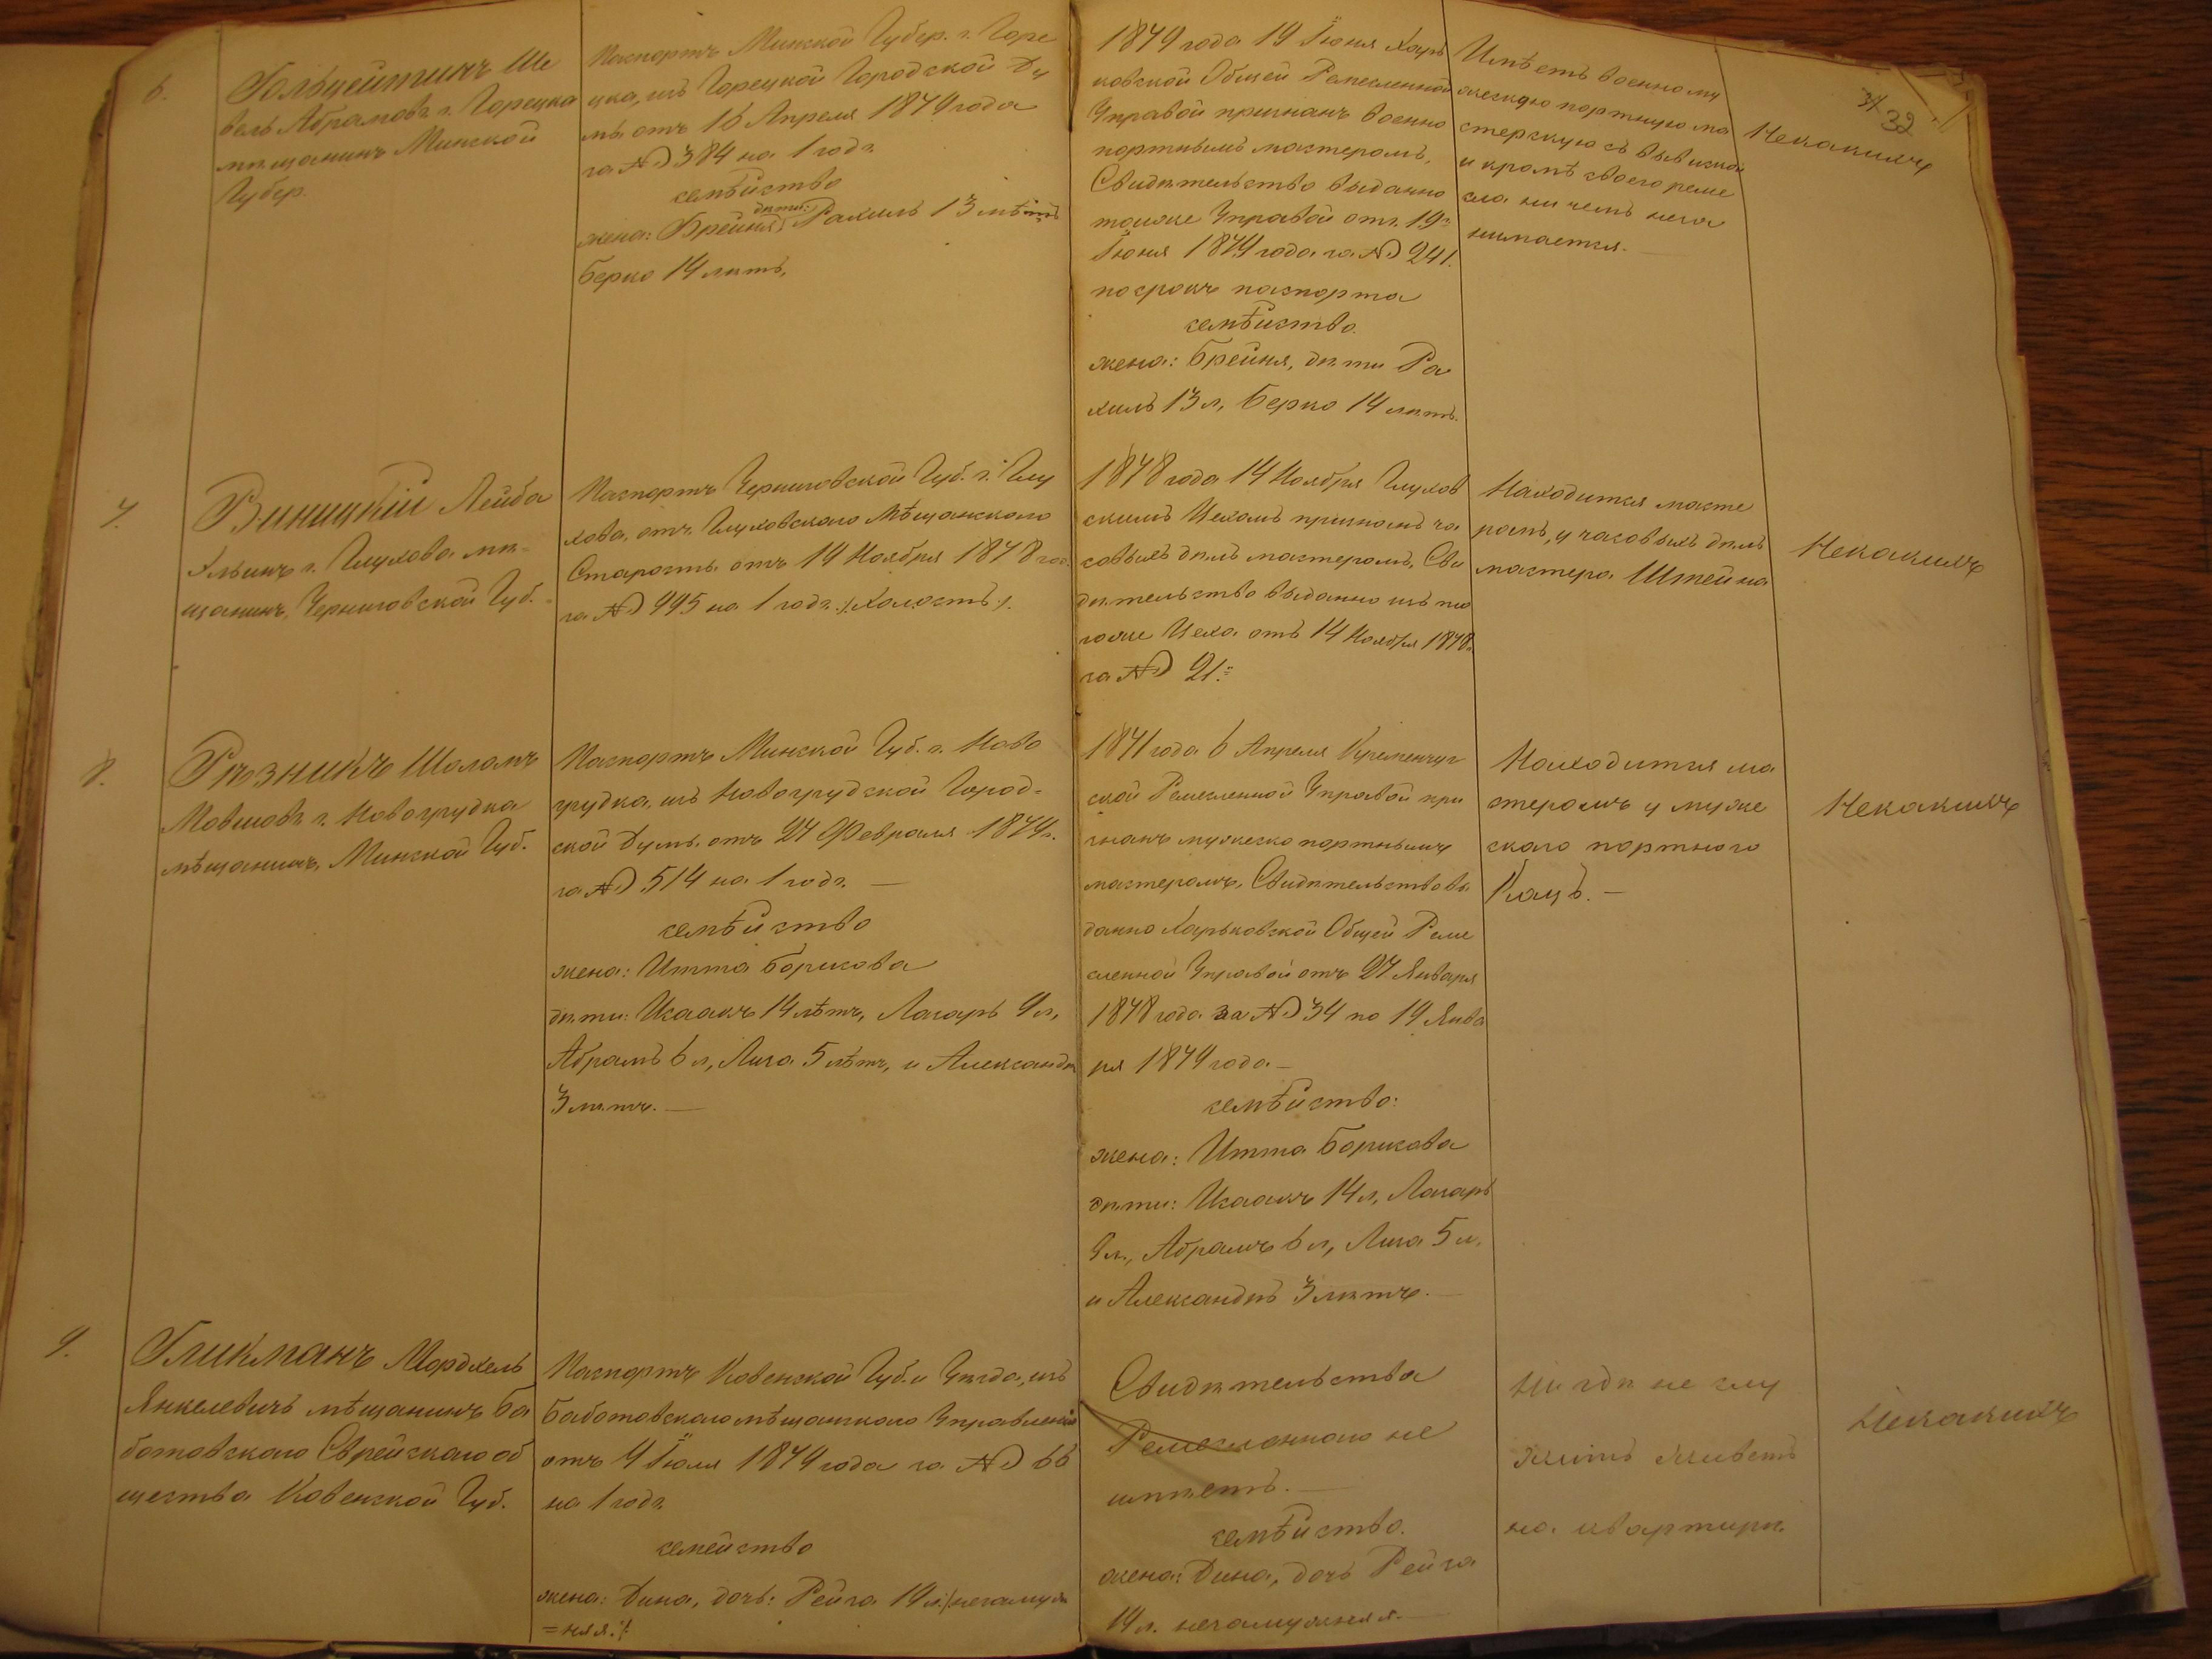 32
6.
Гольцейтинъ Ше
вель Абрамовъ г. Горецка
мѣщанинъ Минской
Губер.
Паспортъ Минской Губер. г. Горе
цка, изъ Горецкой Городской Ду
мы отъ 16 Апреля 1879 года
за № 384 на 1 годъ
семѣйство
дѣти:
жена: Брейня, Рахиль 13 лѣтъ
Берко 14 лѣтъ,
1879 года 19 Іюня Харь
ковской Общей Ремесленной
Управой признанъ военно
портнымъ мастеромъ,
Свидѣтельство выданно
тоюже Управой отъ 19
Іюня 1879 года за № 241.
по срокъ паспорта
семѣйство.
жена: Брейня, дѣти Ра
хиль 13 л, Берко 14 лѣтъ.
Имѣетъ военному
жескую портную ма
стерскую съ вывиской
и кромѣ своего реме
сла ни чемъ неза
нимается.—
Некакихъ
7.
Виницкій Лейба
Хлынъ г. Глухова мѣ-
щанинъ, Черниговской Губ.
Паспортъ Черниговской Губ. г. Глу
хова, отъ Глуховскаго Мѣщанскаго
Старосты отъ 14 Ноября 1878 год.
за № 995 на 1 годъ ./. Холостъ ./.
1878 года 14 Ноября Глухов
скимъ Цехомъ признанъ ча
совыхъ дѣлъ мастеромъ, Сви
дѣтельство выданно изъ то
гоже Цеха отъ 14 Ноября 1878 г.
за № 21.
Находится масте
ромъ, у часовыхъ дѣлъ
мастера Штейна
Некакихъ
8.
Рѣзникъ Шоломъ
Мовшовъ г. Новогрудка
мѣщанинъ, Минской Губ.
Паспортъ Минской Губ. г. Ново
грудка, изъ Новогрудской Город-
ской Думы отъ 27 Февраля 1879 г.
за № 514 на 1 годъ. —
семѣйство
жена: Итта Борисова
дѣти: Исаакъ 14 лѣтъ, Лазарь 9 л,
Абрамъ 6 л, Лиза 5 лѣтъ, и Александръ
3 лѣтъ. —
1871 года 6 Апреля Кременчуг
ской Ремесленной Управой при
гнанъ мужеско портнымъ
мастеромъ, Свидѣтельство вы
данно Харьковской Общей Реме
сленной Управой отъ 27 Января
1878 года за № 34 по 19 Янва
ря 1879 года —
семѣйство:
жена: Итта Борисова
дѣти: Исаакъ 14 л, Лазарь
9 л., Абрамъ 6 л, Лиза 5 л.
и Александръ 3 лѣтъ. —
Находится ма
стеромъ у муже
скаго портного
Кацъ. —
Некакихъ
9.
Гликманъ Мордхель
Янкелевичъ мѣщанинъ Ба
ботовскаго Еврейскаго об
щества Ковенской Губ.
Паспортъ Ковенской Губ. и Уѣзда, изъ
Баботовскаго мѣщанскаго Управленія
отъ 9 Іюля 1879 года за № 66
на 1 годъ
семейство
жена: Дина, дочь: Рейза 19 л. /. незамуж
=няя. /.
Свидѣтельства
Ремесланнаго не
имѣетъ. —
семѣйство.
жена: Дина, дочь Рейза
19 л. незамужняя. —
Ни гдѣ не слу
житъ живетъ
на квартирѣ.
Некакихъ